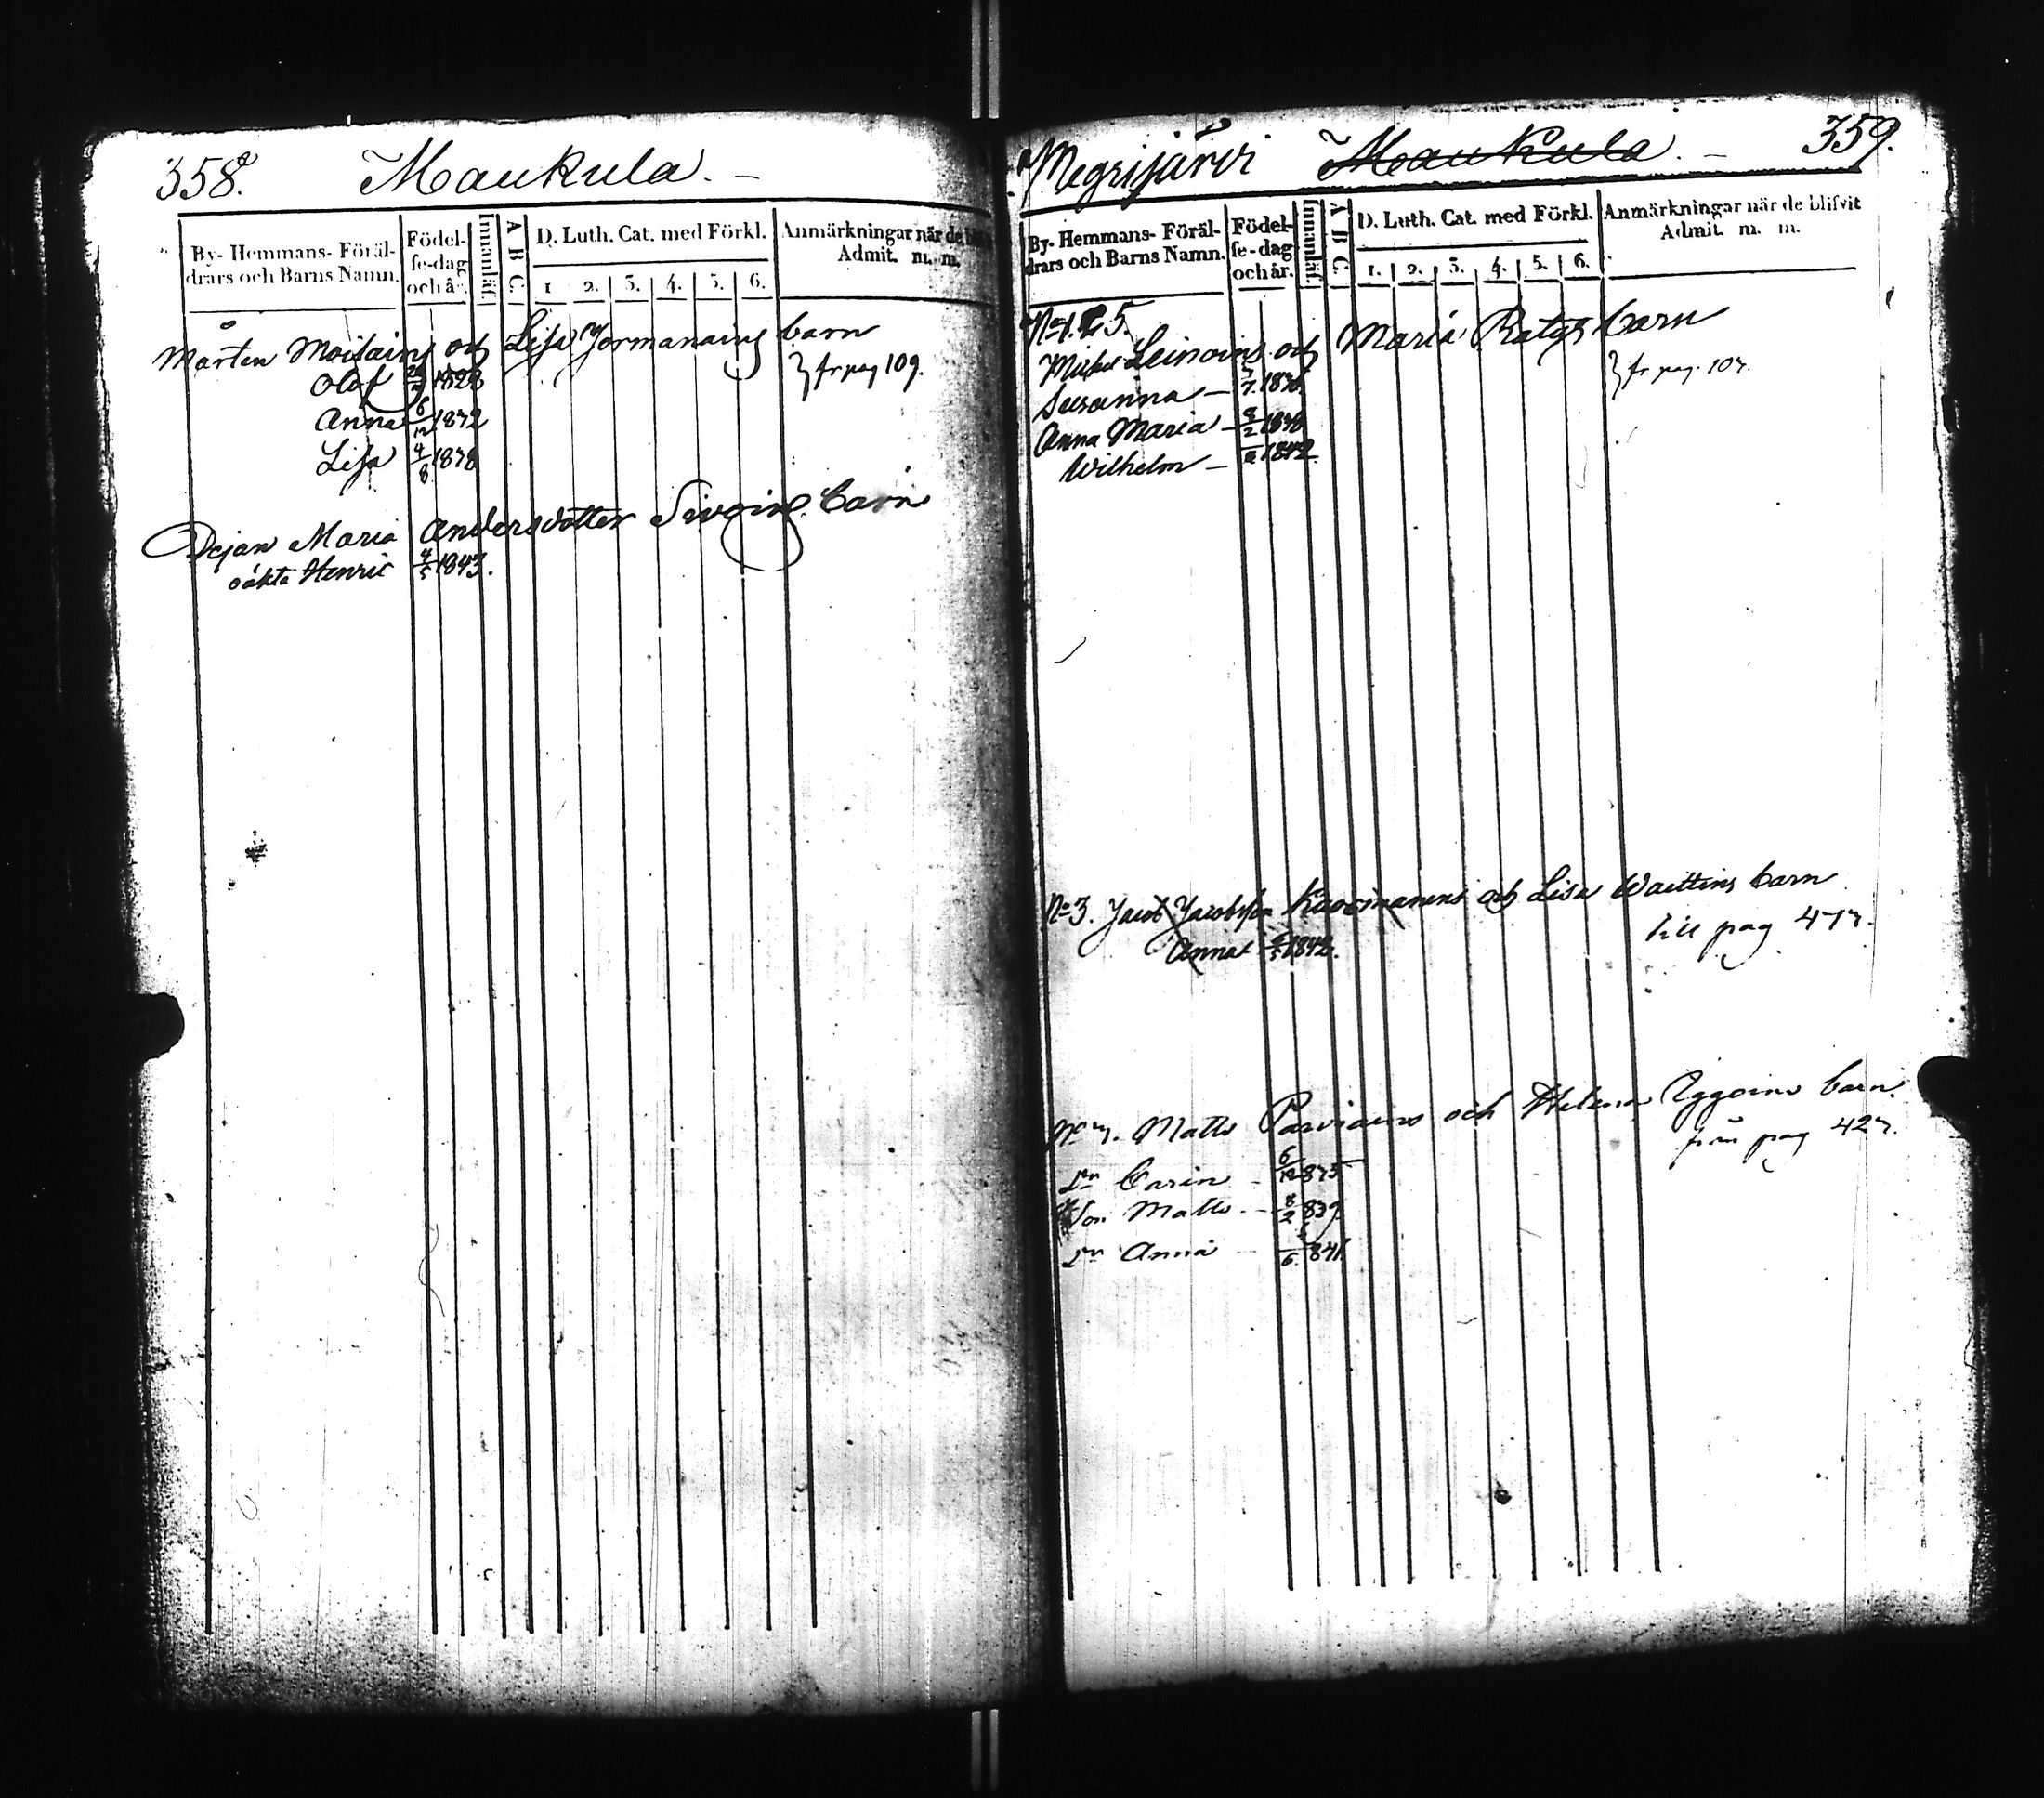 358. Maukula. –
By- Hemmans- Föräl-
drars och Barns Namn.
Födel-
se-dag
och år.
Innanläs.
A B C.
D. Luth. Cat. med Förkl.
1 2. 3. 4. 5. 6.
Anmärkningar när de
Admit. m. m.
Mårten Moilains och Lisa Jormanains barn
Olof 1828 } fr pag 109.
Anna 6/12 1832
Lisa 4/8 1838
Pejan Maria Andersdotter Sivoins barn
oäkta Henric 4/5 1843.
Megrijärvi Maukula. – 359.
By- Hemmans- Föräl-
drars och Barns Namn.
Födel-
se-dag
och år.
Innanläs.
A B C.
D. Luth. Cat. med Förkl.
1. 2. 3. 4. 5. 6.
Anmärkningar när de blifvit
Admit. m. m.
Michel Leinoins och Maria Ratys barn
Susanna – } fr. pag. 107.
Anna Maria –
Wilhelm – 1842.
No 3. Jacob Jacobsson och Lisa Waittins barn
Anna 1842. till pag 477.
No 7. Matts Parviains och Helena Iggoins barn.
från pag 427.
Dr Carin – 6/12 835
Son Matts – 8/2 839
Dr Anna – /6 841